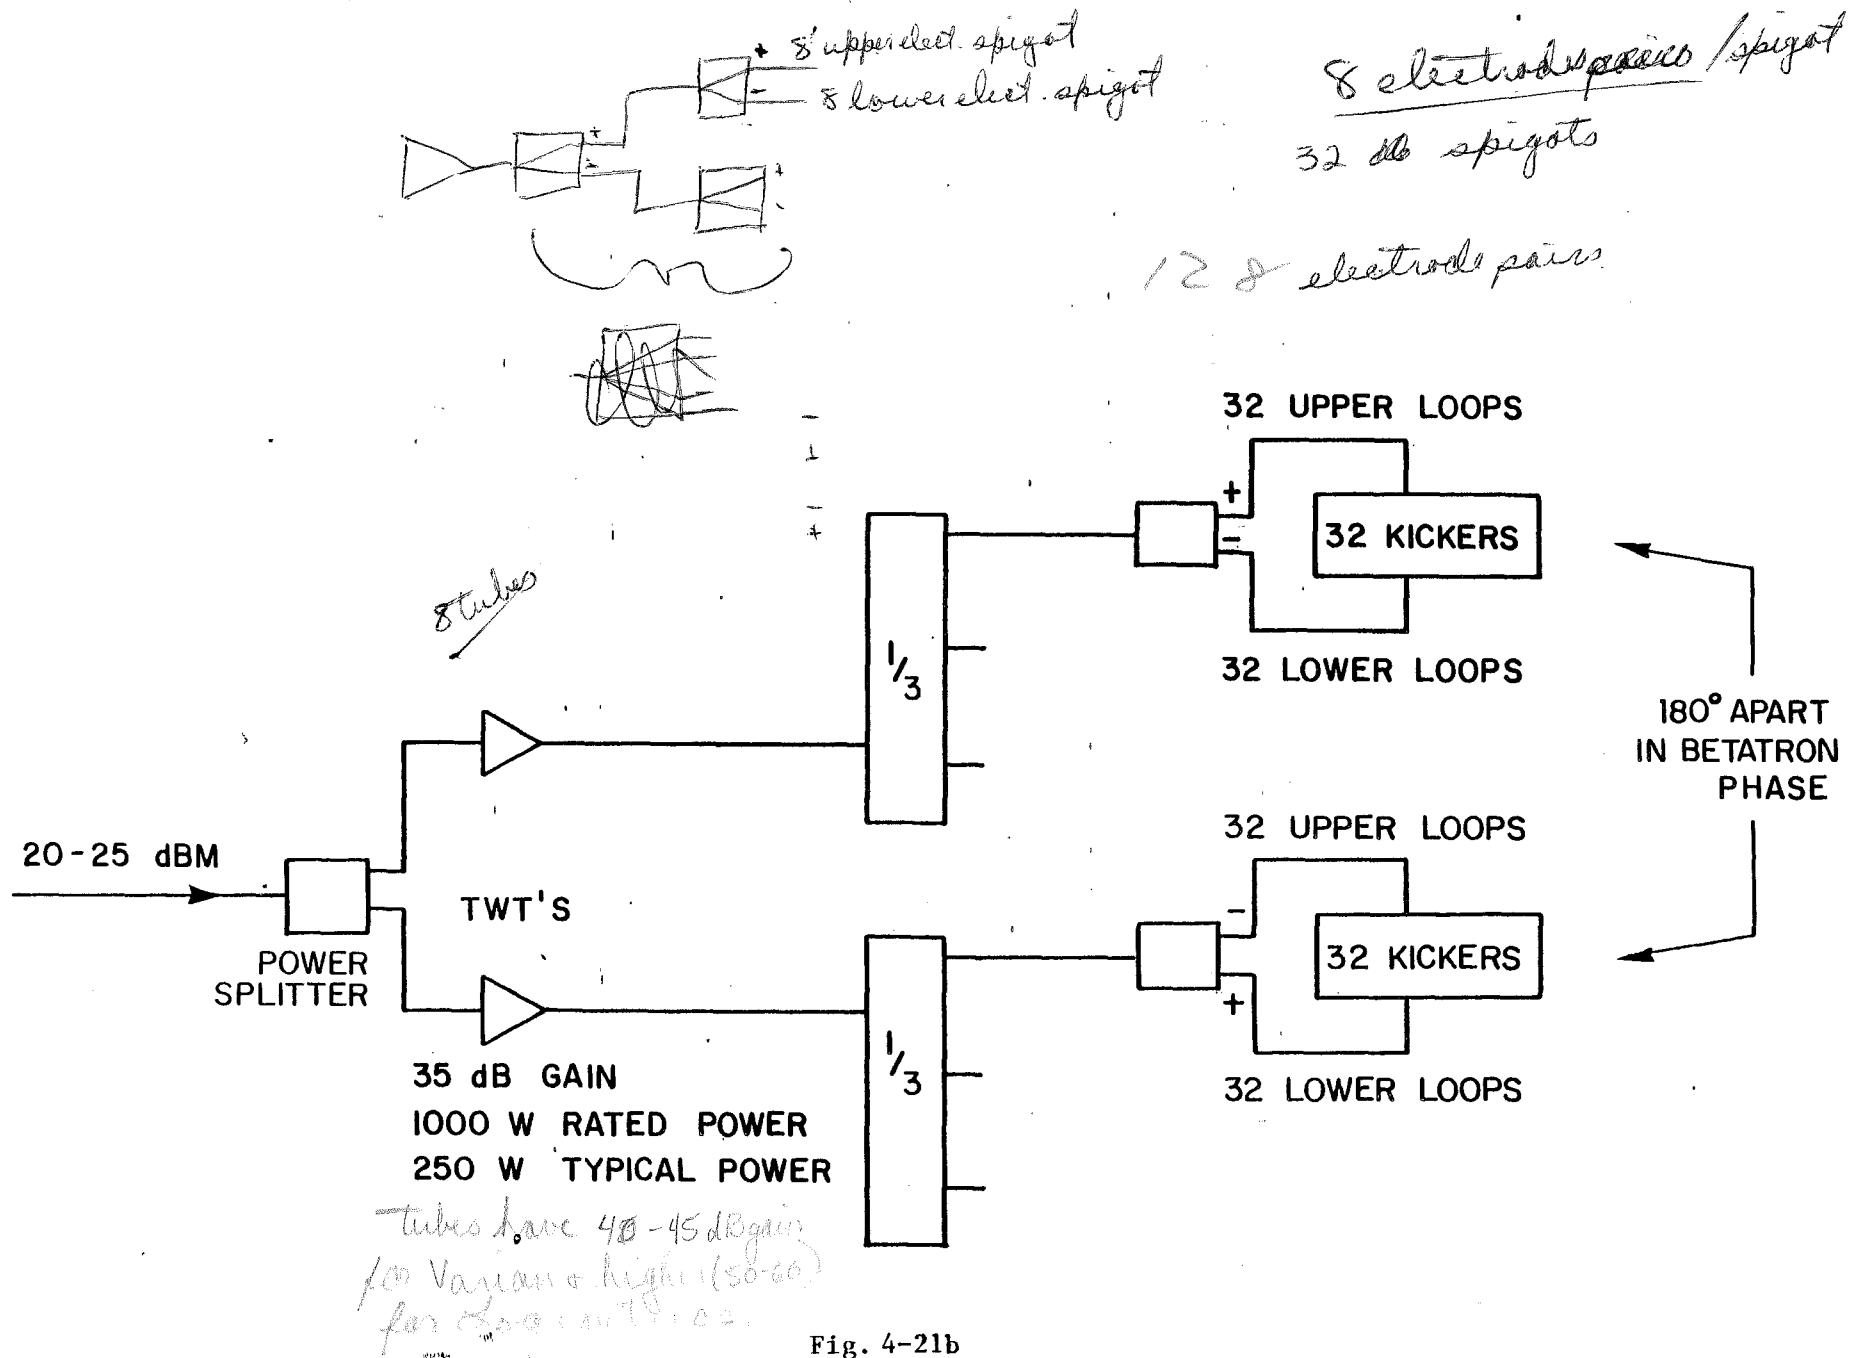 + 8 upper elect. spigot
- 8 lower elect. spigot
8 electrode pairs / spigot
32 spigots
128 electrode pairs
+
+
-
-
-
+
8 tubes
32 UPPER LOOPS
+
-
32 KICKERS
32 LOWER LOOPS
1/3
180° APART
IN BETATRON
PHASE
20-25 dBM
POWER
SPLITTER
TWT'S
32 UPPER LOOPS
-
+
32 KICKERS
32 LOWER LOOPS
1/3
35 dB GAIN
1000 W RATED POWER
250 W TYPICAL POWER
tubes have 40-45 dB gain
for Varian & higher (50-60)
for
Fig. 4-21b